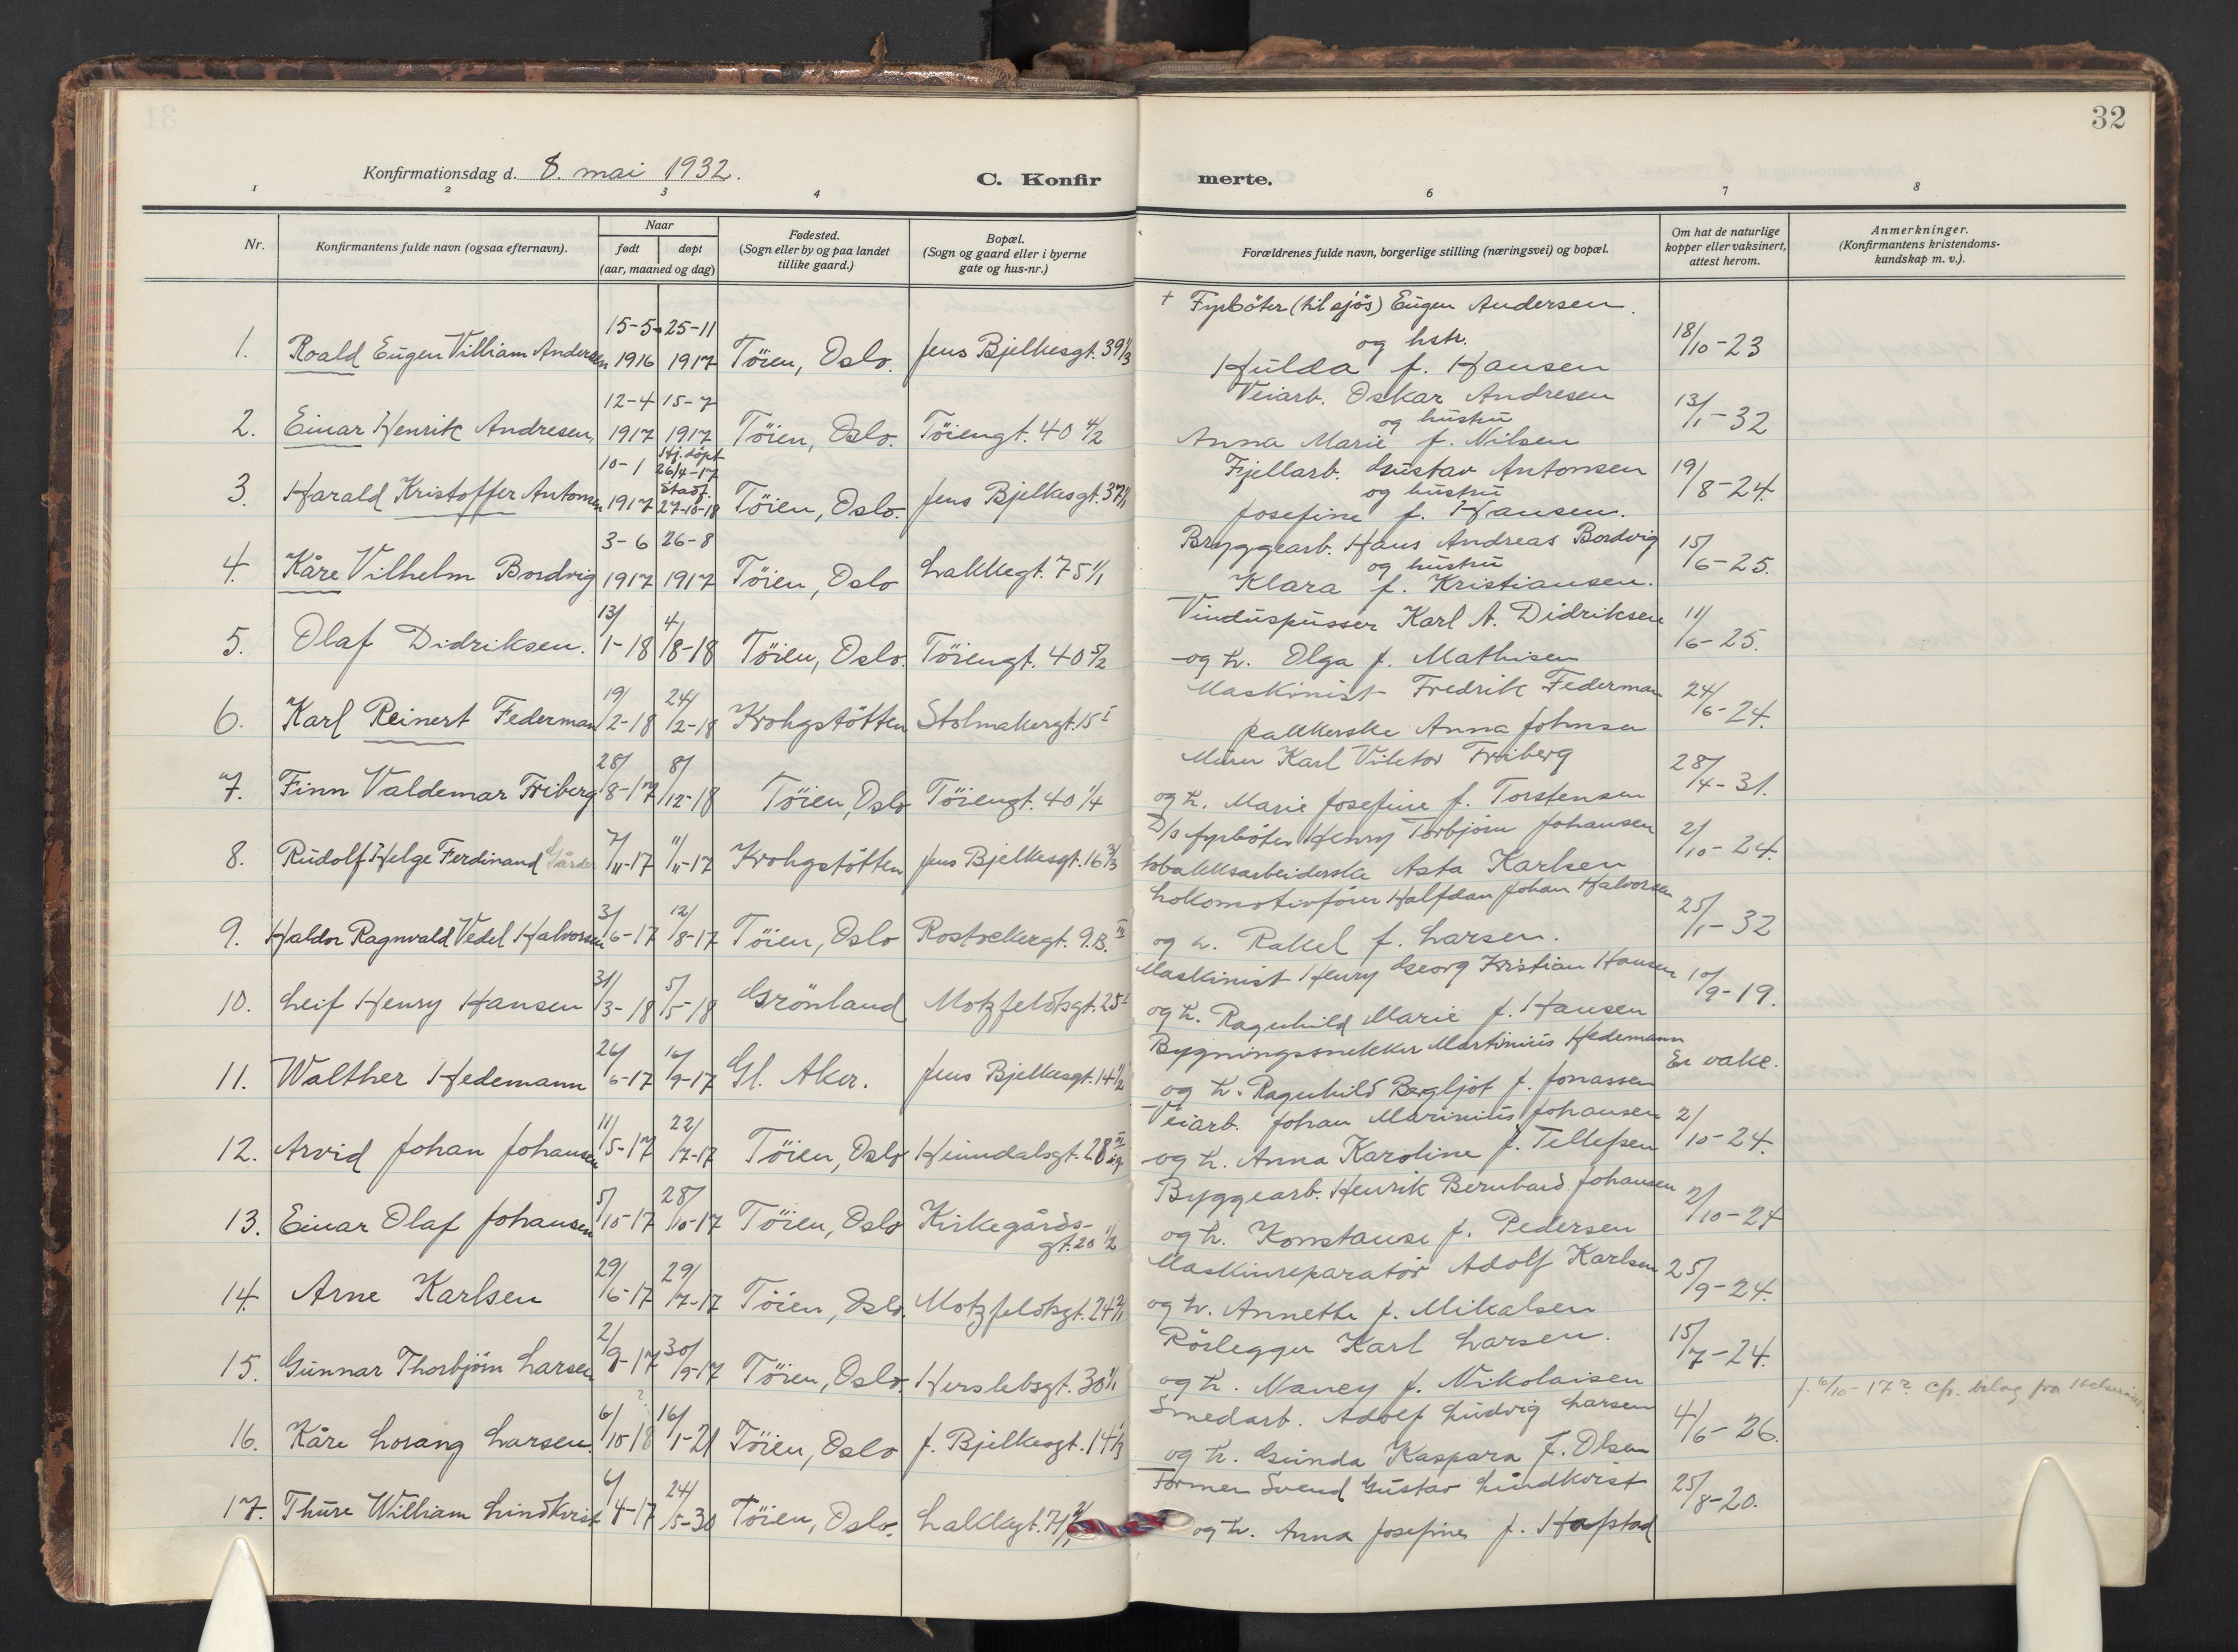 32
Konfirmationsdag d. 8. mai 1932.
C. Konfirmerte.
1 2 3 4 6 7 8
Nr.
Konfirmantens fulde navn (ogsaa efternavn).
Naar
født døpt
(aar, maaned og dag)
Fødested.
(Sogn eller by og paa landet
tillike gaard.)
Bopæl.
(Sogn og gaard eller i byerne
gate og hus-nr.)
Forældrenes fulde navn, borgerlige stilling (næringsvei) og bopæl.
Om hat de naturlige
kopper eller vaksinert,
attest herom.
Anmerkninger.
(Konfirmantens kristendoms-
kundskap m. v.).
1. Roald Eugen Villiam Andersen 15-5 1916 25-11 1917 Töien, Oslo. Jens Bjelkesgt. 39 1/3
+ Fyrböter (til sjös) Eugen Andersen.
og hstr.
Hulda f. Hansen
18/10-23
2. Einar Henrik Andresen, 12-4 1917 15-7 1917 Töien, Oslo. Töiengt. 40 4/2
Veiarb. Oskar Andresen
og hustru
Anna Marie f. Nilsen
13/1-32
3. Harald Kristoffer Antonsen 10-1 1917 Hj.döpt 26/4-17 Stadf. 27-10-18 Töien, Oslo. Jens Bjelkesgt. 37 1/1
Fjellarb. Gustav Antonsen
og hustru
Josefine f. Hansen.
19/8-24.
4. Kåre Vilhelm Bordvig 3-6 1917 26-8 1917 Töien, Oslo Lakkegt. 75 1/1
Bryggearb. Hans Andreas Bordvig
og hustru
Klara f. Kristiansen.
15/6-25.
5. Olaf Didriksen. 13/1-18 4/8-18 Töien, Oslo. Töiengt. 40 5/2
Vinduspusser Karl A. Didriksen
og h. Olga f. Mathisen
11/6-25.
6. Karl Reinert Federman 19/2-18 24/2-18 Krohgstötten Stolmakergt. 15 I
Maskinist Fredrik Federman
pakkerske Anna Johnsen
24/6-24.
7. Finn Valdemar Friberg 28/8-17 8/12-18 Töien, Oslo Töiengt. 40 1/4
Murer Karl Viktor Friberg
og h. Marie Josefine f. Torstensen
28/4-31.
8. Rudolf Helge Ferdinand Gårder 7/11-17 11/11-17 Krohgstötten Jens Bjelkesgt. 16 3/3
D/s fyrböter Henry Torbjörn Johansen
tobakksarbeiderske Asta Karlsen
2/10-24.
9. Haldor Ragnvald Vedel Halvorsen 3/6-17 12/8-17 Töien, Oslo Rostockergt. 9.B. III
Lokomotivförer Halfdan Johan Halvorsen
og h. Rakel f. Larsen.
25/1-32
10. Leif Henry Hansen 31/3-18 5/5-18 Grönland Motzfeldtsgt. 25 I
Maskinist Henry Georg Kristian Hansen
og h. Ragnhild Marie f. Hansen
10/9-19.
11. Walther Hedemann 26/6-17 16/9-17 Gl. Aker. Jens Bjelkesgt. 14 1/2
Bygningssnekker Martinius Hedemann
og h. Ragnhild Bergljot f. Jonassen
Er vakc.
12. Arvid Johan Johansen 11/5-17 22/7-17 Töien, Oslo Heimdalsgt. 28 III
Veiarb. Johan Marinius Johansen
og h. Anna Karoline f. Tellefsen
2/10-24.
13. Einar Olaf Johansen 5/10-17 28/10-17 Töien, Oslo Kirkegårds-
gt. 20 1/2
Byggearb. Henrik Bernhard Johansen
og h. Konstanse f. Pedersen
2/10-24
14. Arne Karlsen 29/6-17 29/7-17 Töien, Oslo. Motzfeldtsgt. 24 2/1
Maskinreparatör Adolf Karlsen
og h. Annette f. Mikalsen
25/9-24.
15. Gunnar Thorbjörn Larsen 2/9-17 30/9-17 Töien, Oslo. Herslebsgt. 30 1/1
Rörlegger Karl Larsen.
og h. Nancy f. Nikolaisen
15/7-24.
16. Kåre Lorang Larsen. 6/10-18 ? 16/1-21 Töien, Oslo J. Bjelkesgt. 14 1/3
Smedarb. Adolf Ludvig Larsen
og h. Gunda Kaspara f. Olsen
4/6-26.
f. 6/10-17? cfr. bilag fra
17. Thure William Lindkvist 6/4-17 24/5-30 Töien, Oslo. Lakkegt. 71
Former Svend Gustav Lindkvist
og h. Anna Josefine f. Hafstad
25/8-20.